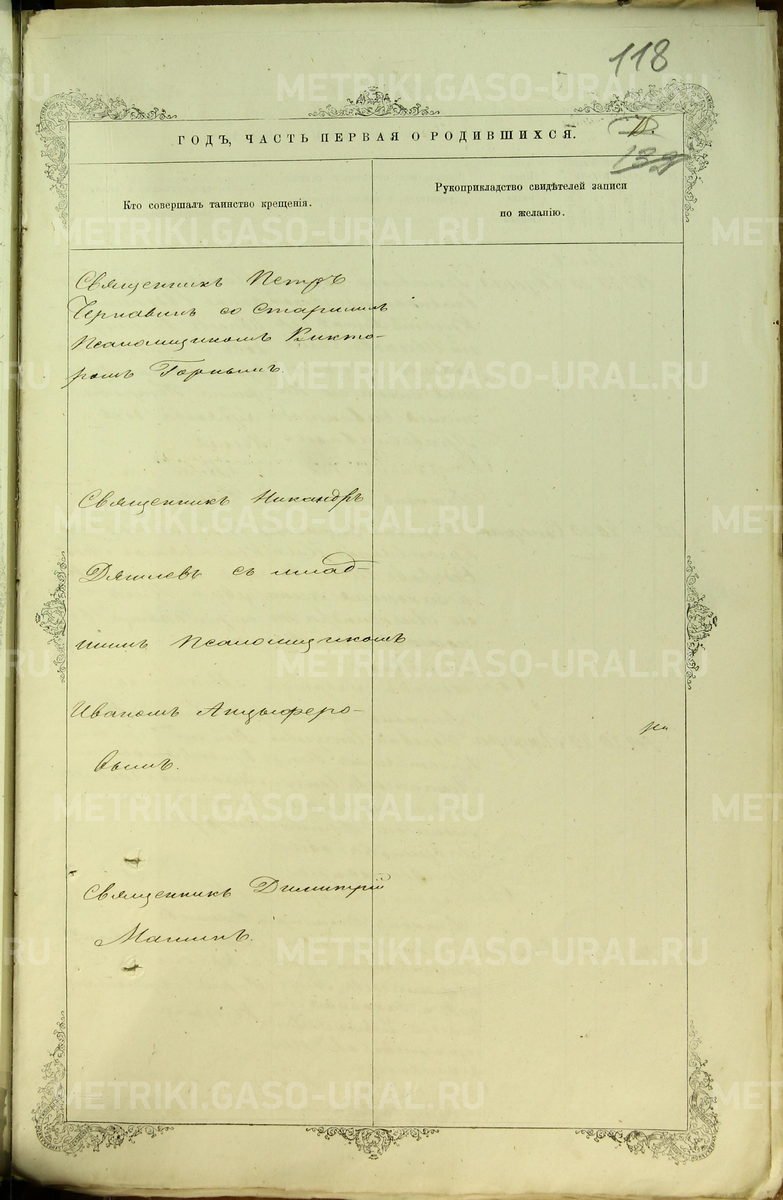 118
ГОДЪ, ЧАСТЬ ПЕРВАЯ О РОДИВШИХСЯ.
139
Кто совершалъ таинство крещенія.
Рукоприкладство свидѣтелей записи
по желанію.
Священникъ Петръ
Чернавинъ со старшимъ
Псаломщикомъ Викто-
ромъ Горнымъ.
Священникъ Никандръ
Дягилевъ съ млад-
шимъ Псаломщикомъ
Иваномъ Анцыферо-
вымъ.
Священникъ Димитрій
METRIKI.GASO-URAL.RU